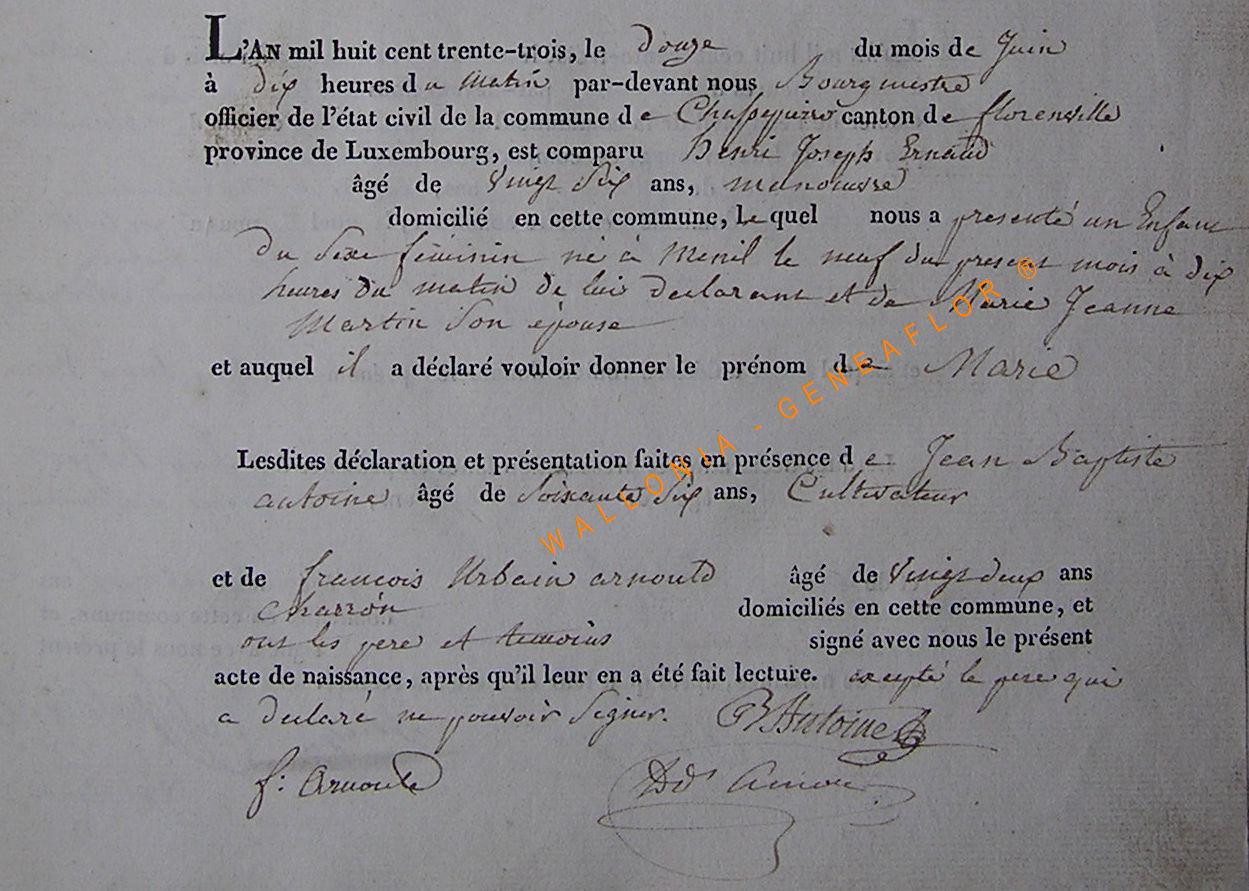 L'AN mil huit cent trente-trois, le Douze du mois de Juin
à dix heures du matin par-devant nous Bourgmestre
officier de l'état civil de la commune de Chassepierre canton de florenville
province de Luxembourg, est comparu henri Joseph Ernaud
âgé de Vingt Six ans, manoeuvre
domicilié en cette commune, le quel nous a presenté un Enfant
Du Sexe féminin né à Menil le neuf du present mois à dix
heures du matin de lui declarant et de Marie Jeanne
Martin Son épouse
et auquel il a déclaré vouloir donner le prénom de Marie
Lesdites déclaration et présentation faites en présence de Jean Baptiste
antoine âgé de Soixante Six ans, Cultivateur
et de francois Urbain arnould âgé de Vingt deux ans
charron domiciliés en cette commune, et
ont les pere et temoins signé avec nous le présent
acte de naissance, après qu'il leur en a été fait lecture. excepté le pere qui
a declaré ne pouvoir Signer. Antoine
f: Arnould
WALLONIA - GENEAFLOR ®